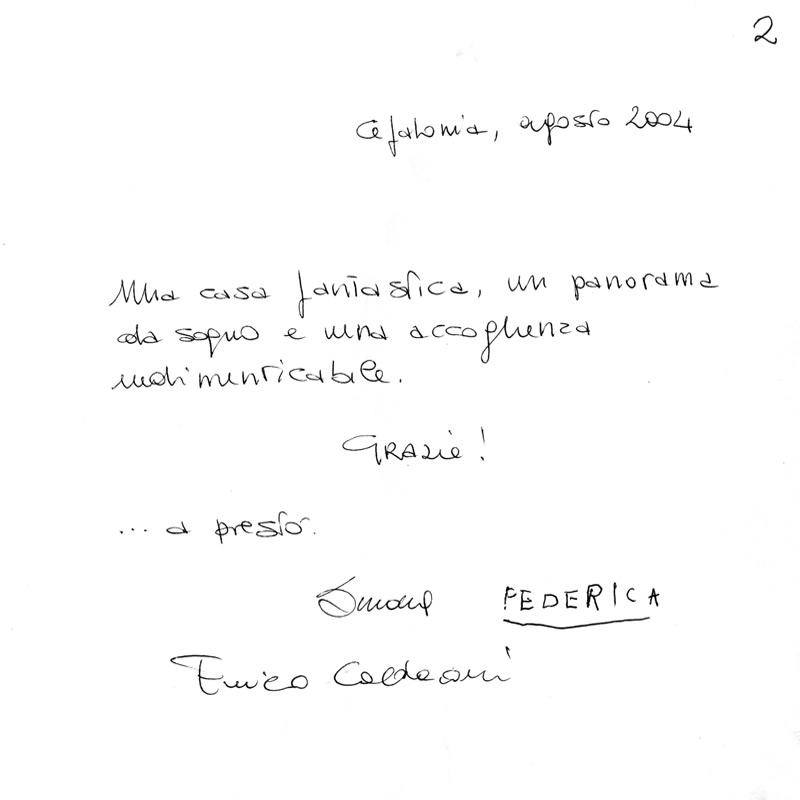 2
Cefalonia, agosto 2004
Una casa fantastica, un panorama
da sogno e una accoglienza
indimenticabile.
GRAZIE!
... a presto.
FEDERICA
Enrico